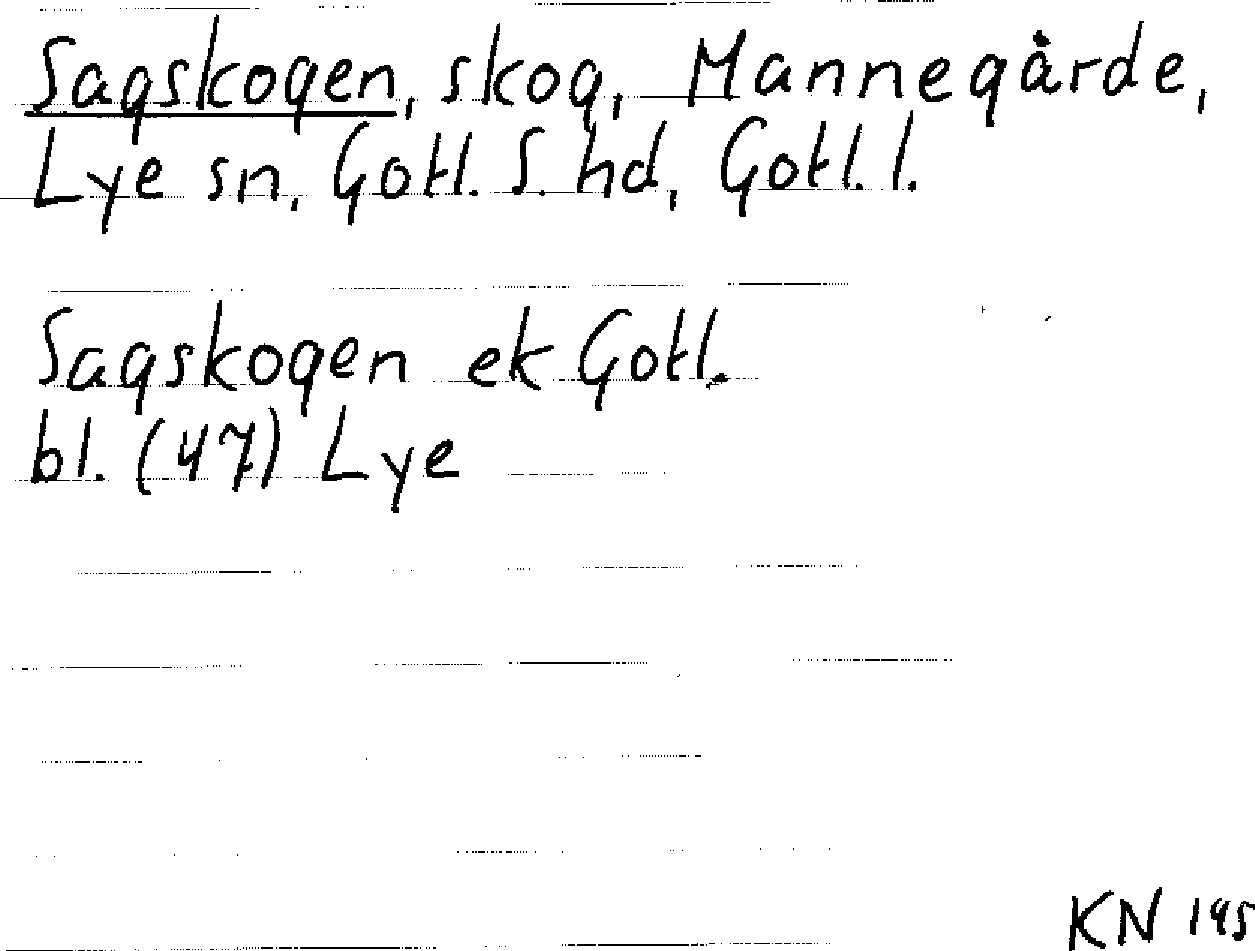 Sagskogen, skog, Mannegårde,
Lye sn, Gotl. S. hd, Gotl. l.
Sagskogen ek Gotl.
bl. (47) Lye
KN 195